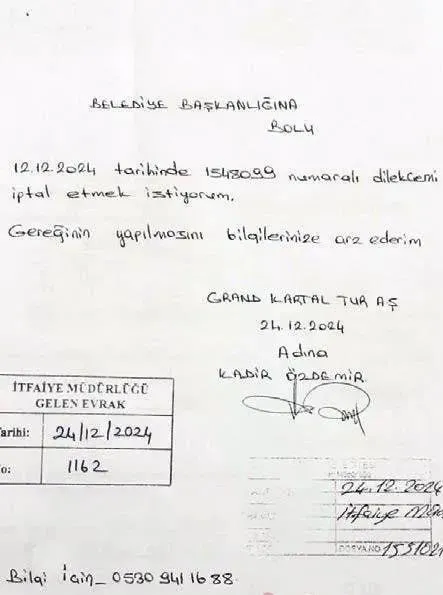 BELEDİYE BAŞKANLIĞINA
BOLU
12.12.2024 tarihinde 1548099 numaralı dilekcemi
iptal etmek istiyorum.
Gereğinin yapılmasını bilgilerinize arz ederim
GRAND KARTAL TUR AŞ
24.12.2024
Adına
KADİR ÖZDEMİR
İTFAİYE MÜDÜRLÜĞÜ
GELEN EVRAK
arihi: 24/12/2024
o: 1162
24.12.2024
itfaiye Müd
DOSYA NO 1551021
Bilgi İçin_ 0530 941 16 88